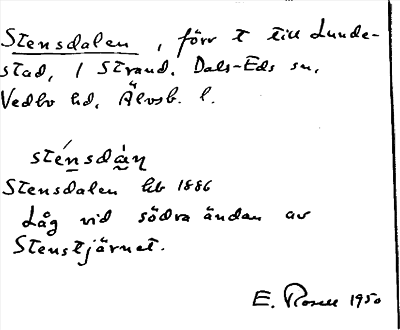 Stensdalen, förr t till Lunde-
stad, / Strand. Dals-Eds sn,
Vedbo hd, Älvsb. l.
sténsdàn
Stensdalen hb 1886
Låg vid södra ändan av
Stenstjärnet.
E. Rosell 1950